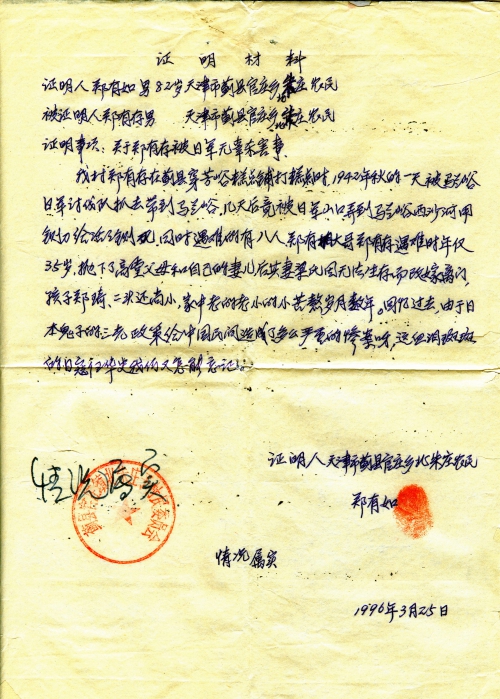 证明材料
证明人郑有如男82岁天津市蓟县官庄乡北朱庄农民
被证明人郑有存男 天津市蓟县官庄乡北朱庄农民
证明事项：关于郑有存被日军无辜杀害事
我村郑有存在蓟县穿芳峪糕点铺打糕点时，1942年秋的一天被马兰峪
日军讨伐队抓去带到马兰峪，几天后竟被日军山口弄到马兰峪西沙河用
同时遇难的有八人郑有 郑有存遇难时年仅
35岁，抛下了高堂父母和自己的妻儿后其妻梁氏因无法生存而改嫁离门
孩子郑琦、二米还尚小，家中老的老小的小苦熬岁月数年。回忆过去，由于日
本鬼子的三光政策给中国民间造成了多么严重的惨案呀，这血泪斑斑
的日寇侵华史我们又怎能忘记。
证明人天津市蓟县官庄乡北朱庄农民
郑有如
情况属实
情况属实
1996年3月25日